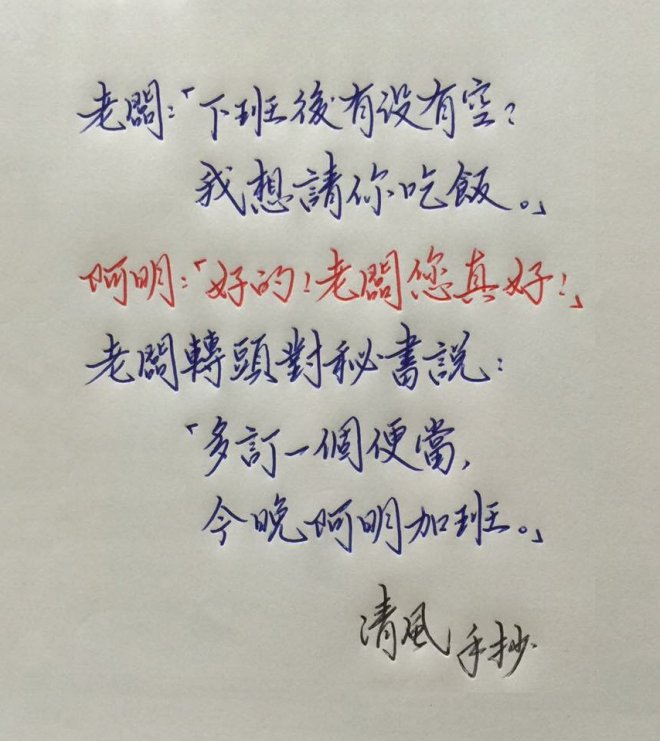 老闆:「下班後有沒有空?
我想請你吃飯。」
阿明:「好的!老闆您真好!」
老闆轉頭對秘書說:
「多訂一個便當,
今晚阿明加班。」
清風手抄